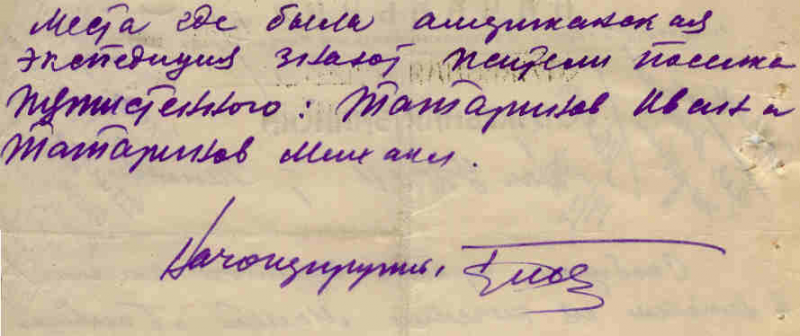 места где была американская
экспедиция знают жители поселка
Пятистенного : Татаринов Иван и
Татаринов Михаил.
Начопергруппы